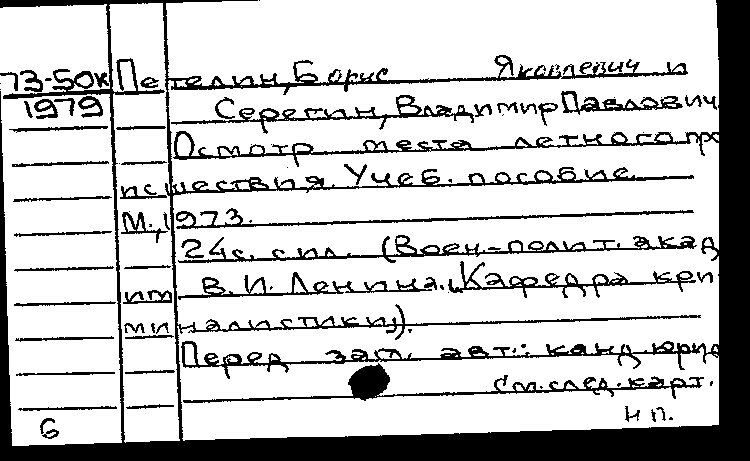 73-50к Петелин, Борис Яковлевич и
1979 Серегин, Владимир Павлович
Осмотр места летного про
исшествия. Учеб. пособие.
М., 1973.
24с. с ил. (Воен.-полит. акад
им В.И. Ленина. Кафедра кри
миналистики).
Перед загл. авт.: канд. юрид
См. след. карт.
6 нп.